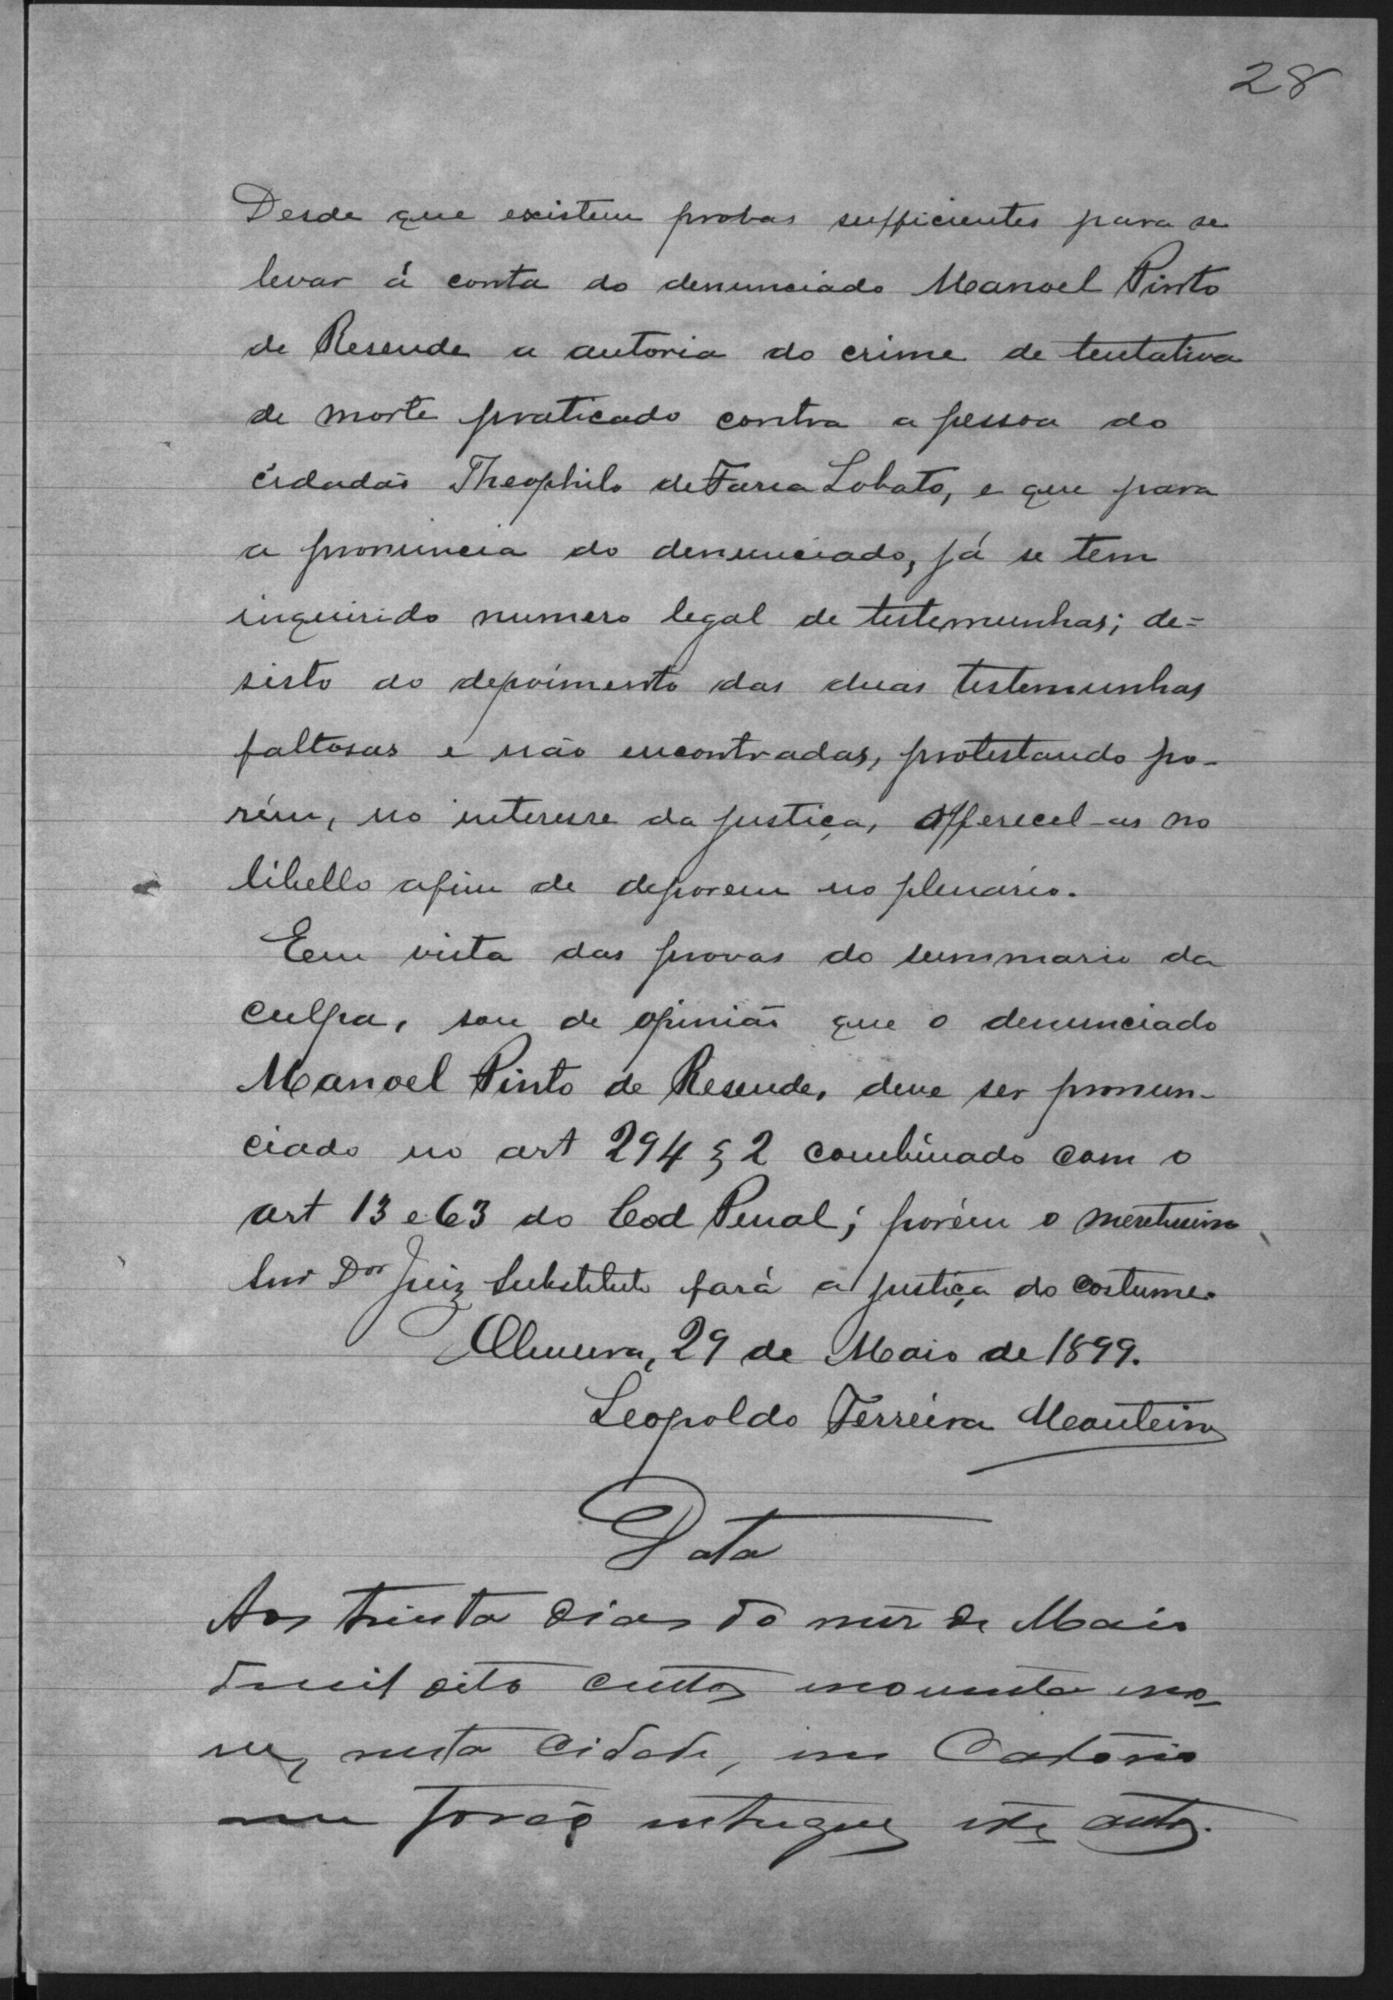 28
Desde que existem probas sufficientes para se
levar á conta do denunciado Manoel Pinto
de Resende a autoria do crime de tentativa
de morte praticado contra a pessoa do
cidadão Theophilo de Faria Lobato, e que para
a pronuncia do denunciado, já se tem
inquirido numero legal de testemunhas; de=
sisto do depoimento das duas testemunhas
faltosas e não encontradas, protestando po-
rém, no interesse da justiça, offerecel-as no
libello afim de deporem no plenario.
Em vista das provas do summario da
culpa, sou de opinião que o denunciado
Manoel Pinto de Resende, deve ser pronun-
ciado no art 294 § 2 combinado com o
art 13 e 63 do Cod Penal; porém o meretissimo
Snr Dor Juiz Substituto fará a justiça do costume.
29 de Maio de 1899.
Leopoldo Ferreira Monteiro
Data
Aos trinta dias do mez de Maio
de mil oito centos noventa no-
ve, nesta Cidade, em Cartorio
me forão entregues estes autos.